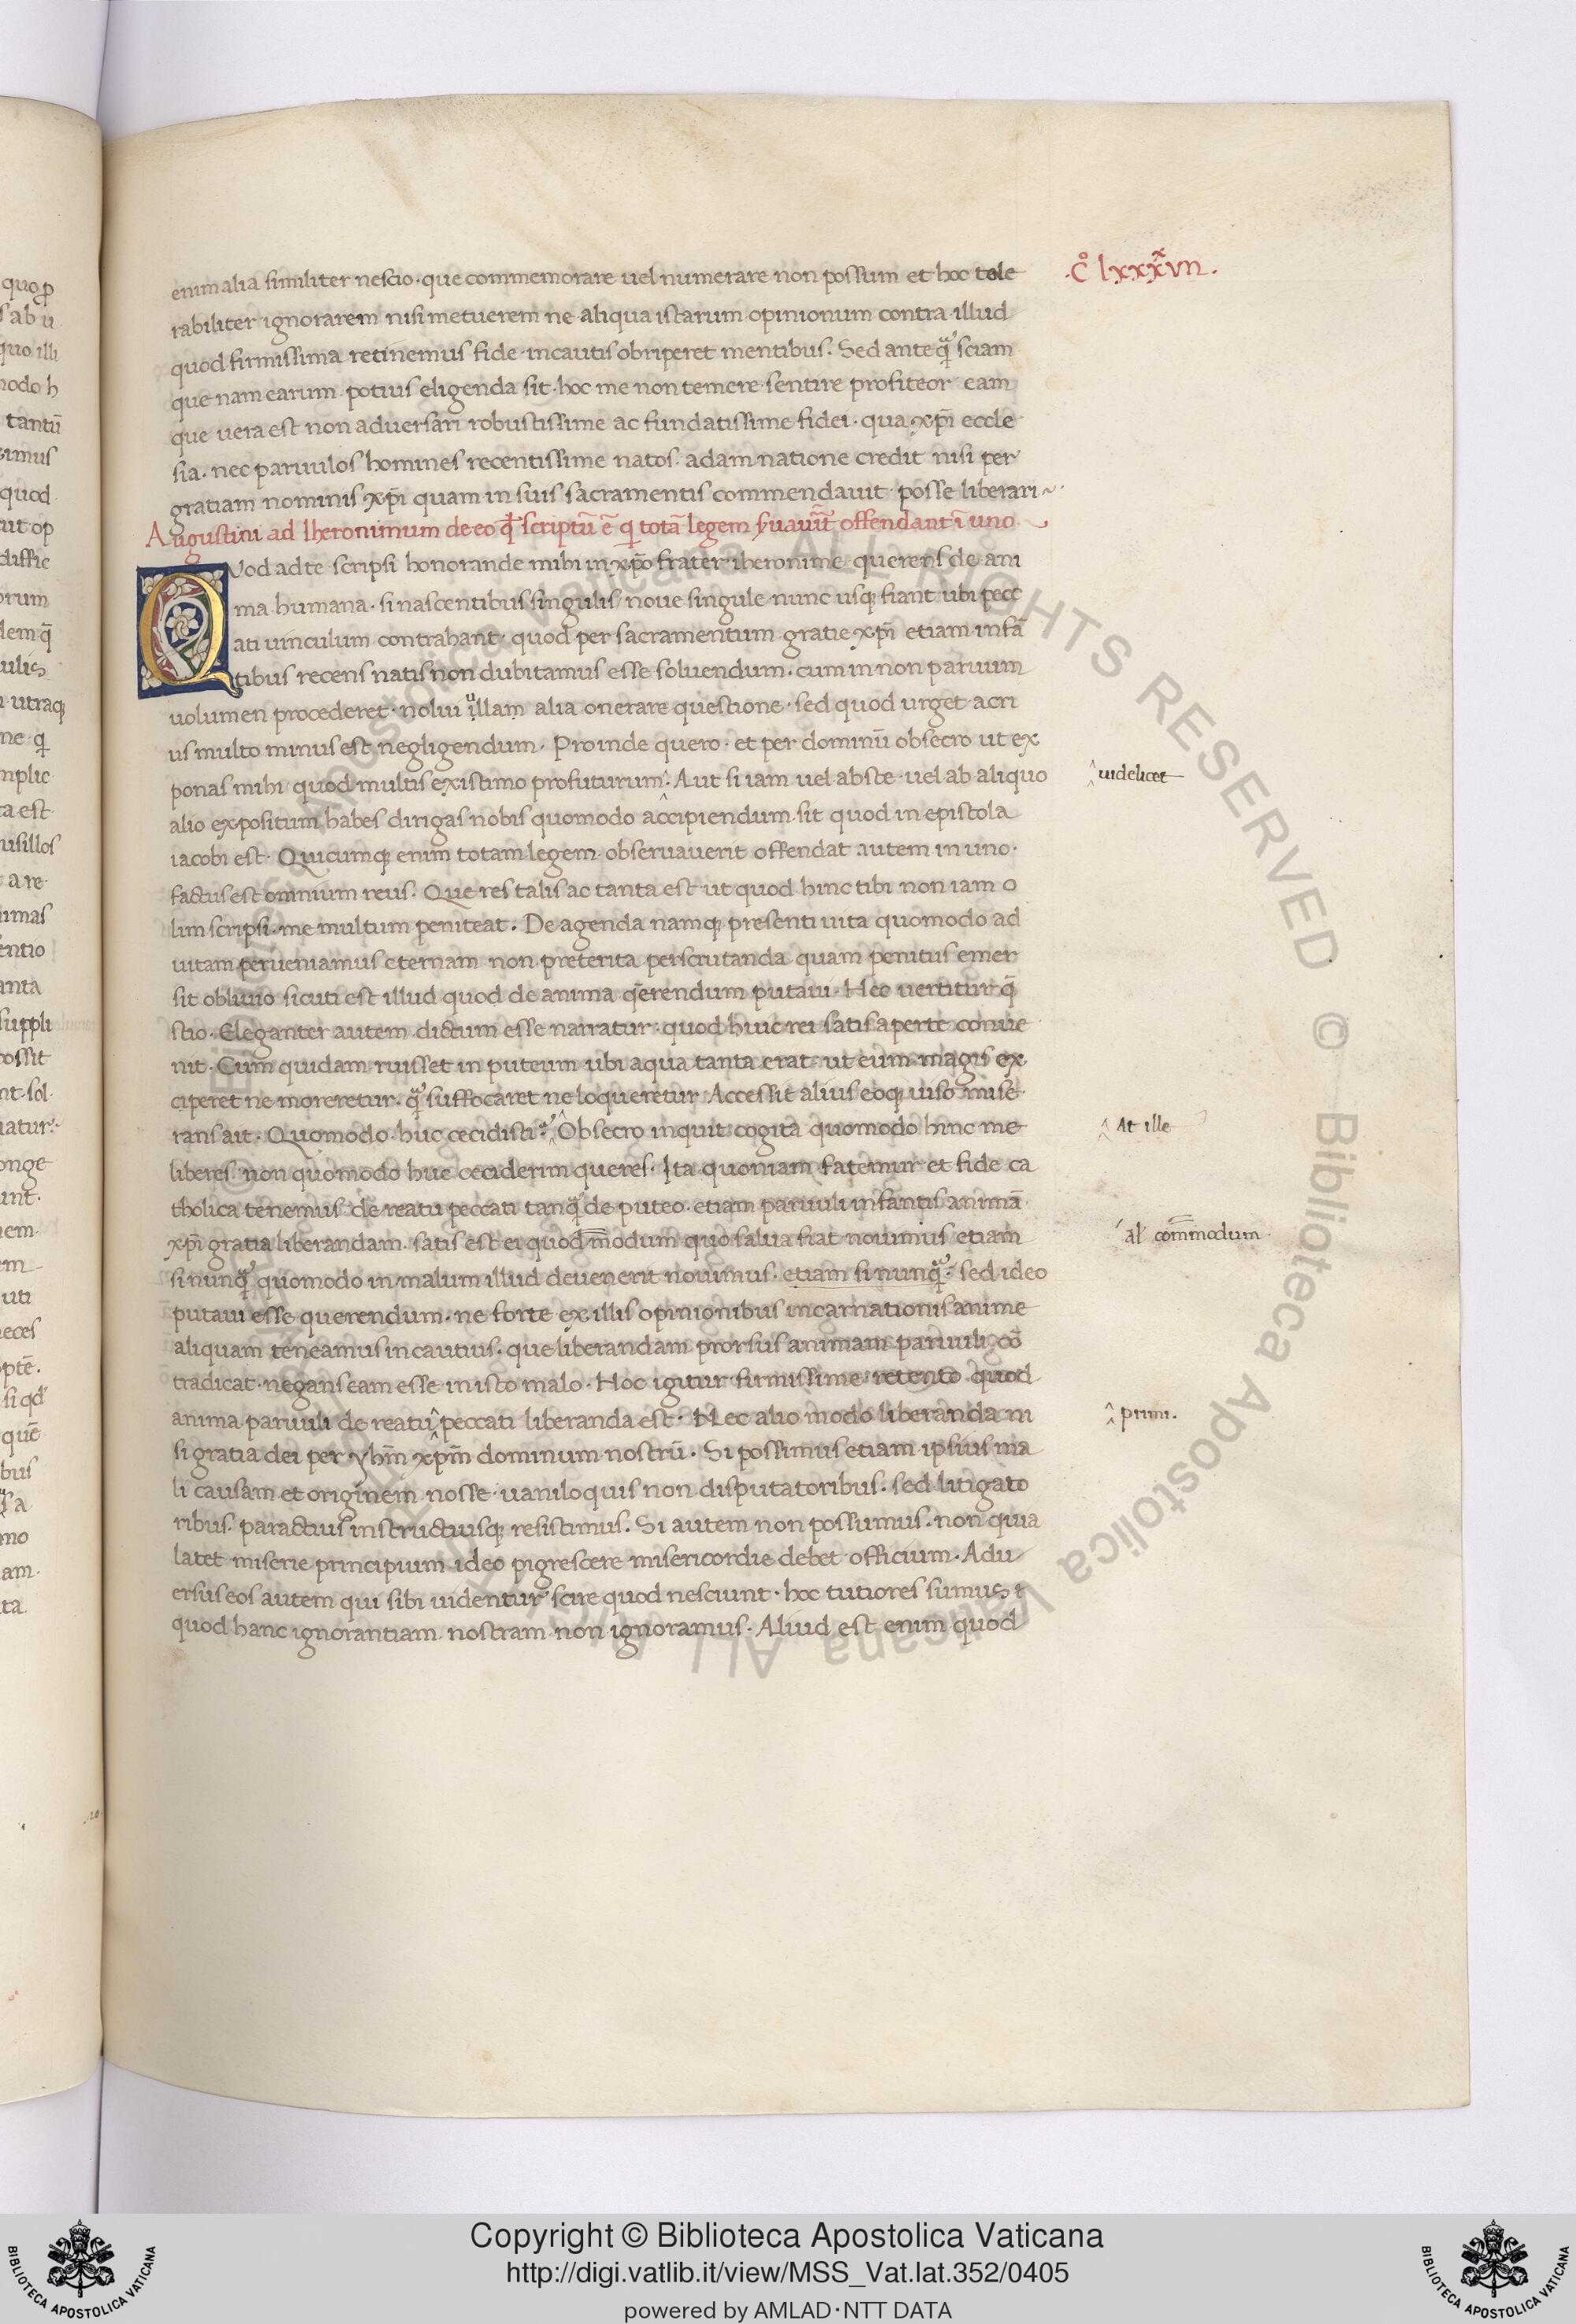 ·C° lxxxxvii·
enim alia similiter nescio · que commemorare uel numerare non possum et hoc tole
rabiliter ignorarem nisi metuerem ne aliqua istarum opinionum contra illud
quod firmissima retinemus fide · incautis obriperet mentibus. Sed ante qͣ sciam
que nam earum potius eligenda sit · hoc me non temere sentire profiteor eam
que uera est non aduersari robustissime ac fundatissime fidei · qua xp̄i eccle
sia · nec paruulos homines recentissime natos adam natione credit nisi per
gratiam nominis xp̄i quam in suis sacramentis commendauit posse liberari~
Augustini ad Iheronimum de eo qđ scriptū ē q totā legem
offendant ī uno
QVod ad te scripsi honorande mihi in xp̄o frater iheronime querens de ani
ma humana · si nascentibus singulis noue singule nunc usq; fiant ubi pecc
ati uinculum contrahant · quod per sacramentum gratie xp̄i etiam infā
tibus recens natis non dubitamus esse soluendum · cum in non paruum
uolumen procederet · nolui illam alia onerare questione · sed quod urget acri
us multo minus est negligendum · Proinde quero · et per dominū obsecro ut ex
ponas mihi quod multis existimo profuturum. Aut si iam uel abs te uel ab aliquo
uidelicet
alio expositum habes dirigas nobis quomodo accipiendum sit quod in epistola
iacobi est · Quicumq; enim totam legem obseruauerit offendat autem in uno ·
factus est omnium reus. Que res talis ac tanta est ut quod hinc tibi non iam o
lim scripsi · me multum peniteat. De agenda namq; presenti uita quomodo ad
uitam perueniamus eternam non preterita perscrutanda quam penitus emer
sit obliuio sicuti est illud quod de anima q̄rendum putaui · Hec uertitur q̄
stio · Eleganter autem dictum esse narratur · quod huic rei satis aperte conue
nit · Cum quidam ruisset in puteum ubi aqua tanta erat · ut eum magis ex
ciperet ne moreretur · qͣ suffocaret ne loqueretur Accessit alius eoq; uiso mise
rans ait · Quomodo huc cecidisti Obsecro inquit cogita quomodo hinc me
At ille
liberes non quomodo huc ceciderim queres · Ita quoniam fatemur et fide ca
tholica tenemus de reatu peccati tanqͣ de puteo · etiam paruuli infantis animā
xp̄i gratia liberandam · satis est ei quod modum quo salua fiat nouimus etiam
al' com̄modum
si nunqͣ quomodo in malum illud deuenerit nouimus · etiam si nunqͣ · sed ideo
putaui esse querendum · ne forte ex illis opinionibus incarnationis anime
aliquam teneamus incautius · que liberandam prorsus animam paruuli cō
tradicat · negans eam esse in isto malo · Hoc igitur firmissime retento quod
anima paruuli de reatu peccati liberanda est · Nec alio modo liberanda ni
primi.
si gratia dei per yhm̄ xpm̄ dominum nostrū · Si possimus etiam ipsius ma
li causam et originem nosse · uaniloquis non disputatoribus · sed litigato
ribus paractius instructiusq; resistimus. Si autem non possumus · non quia
latet miserie principium ideo pigrescere misericordie debet officium · Adu
ersus eos autem qui sibi uidentur scire quod nesciunt · hoc tutiores sumus
quod hanc ignorantiam nostram non ignoramus · Aliud est enim quod
© Biblioteca Apostolica Vaticana ALL RIGHTS RESERVED
Copyright © Biblioteca Apostolica Vaticana
http://digi.vatlib.it/view/MSS_Vat.lat.352/0405
powered by AMLAD·NTT DATA
BIBLIOTECA APOSTOLICA VATICANA
BIBLIOTECA APOSTOLICA VATICANA